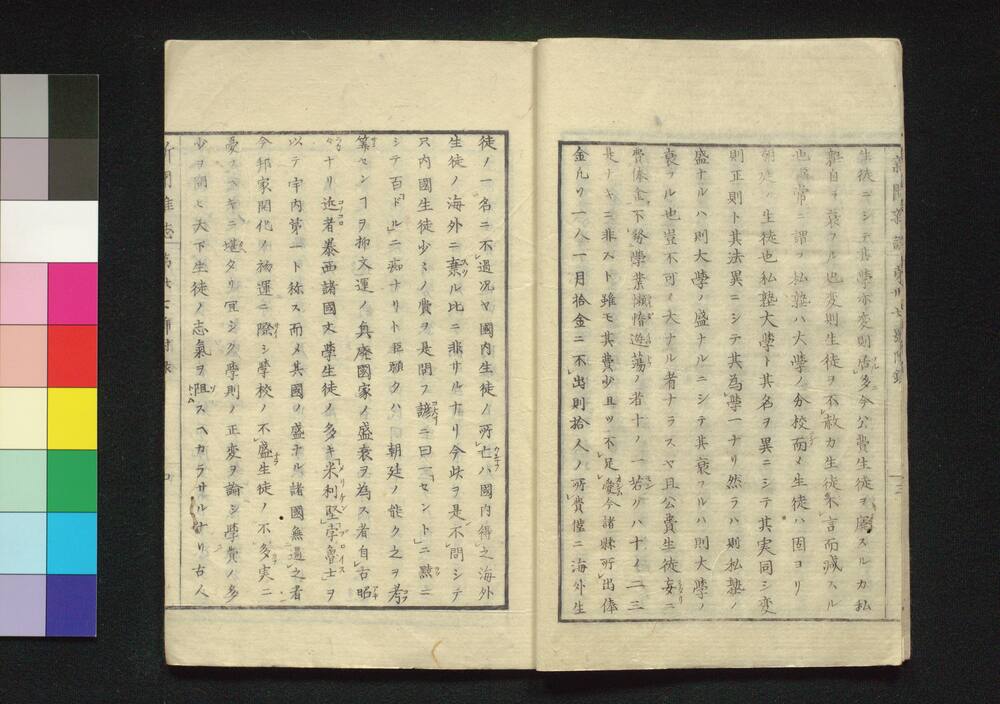 生徒ニシテ舊學亦変則居多今公費生徒ヲ廢スルカ私
塾自ヲ衰フル也変則生徒ヲ不赦カ生徒言而減スル
也尋常ニ謂フ私塾ハ大學ノ分校而メ生徒ハ固ヨリ
朝廷ノ生徒也私塾大學ト其名ヲ異ニシテ其実同シ変
則正則ト其法異ニシテ其為學一ナリ然ラハ則私塾ノ
盛ナルハ則大學ノ盛ナルニシテ其衰フルハ則大學ノ
衰フル也豈不可ノ大ナル者ナラスヤ且公費生徒妄ニ
費俸金不務學業懶惰遊蕩ノ者十ノ一若クハ十ノ二三
是ナキニ非スト雖モ其費少且ツ不足憂今諸縣所出俸
金凡ソ一人一月拾金ニ不出則拾人ノ所費僅ニ海外生
徒ノ一名ニ不過況ヤ國内生徒ノ所亡ハ國内得之海外
生徒ノ海外ニ棄ル比ニ非サルナリ今此ヲ是不問シテ
只内國生徒少シノ費ヲ是問フ諺ニ曰一「セント」ニ黠ニ
シテ百「ドル」ニ痴ナリト臣願クハ 朝廷ノ能ク之ヲ考
案センヿヲ抑文運ノ興廢國家ノ盛衰ヲ為ス者自古昭
々ナリ近者泰西諸國文學生徒ノ多キ米利堅孛魯士ヲ
以テ宇内第一ト称ス而メ其國ノ盛ナル諸國無過之者
今邦家開化ノ機運ニ際シ學校ノ不盛生徒ノ不多実ニ
憂フヘキニ堪タリ宜シク學則ノ正変ヲ論シ學費ノ多
少ヲ問ヒ天下生徒ノ志氣ヲ阻スヘカラサルナリ古人